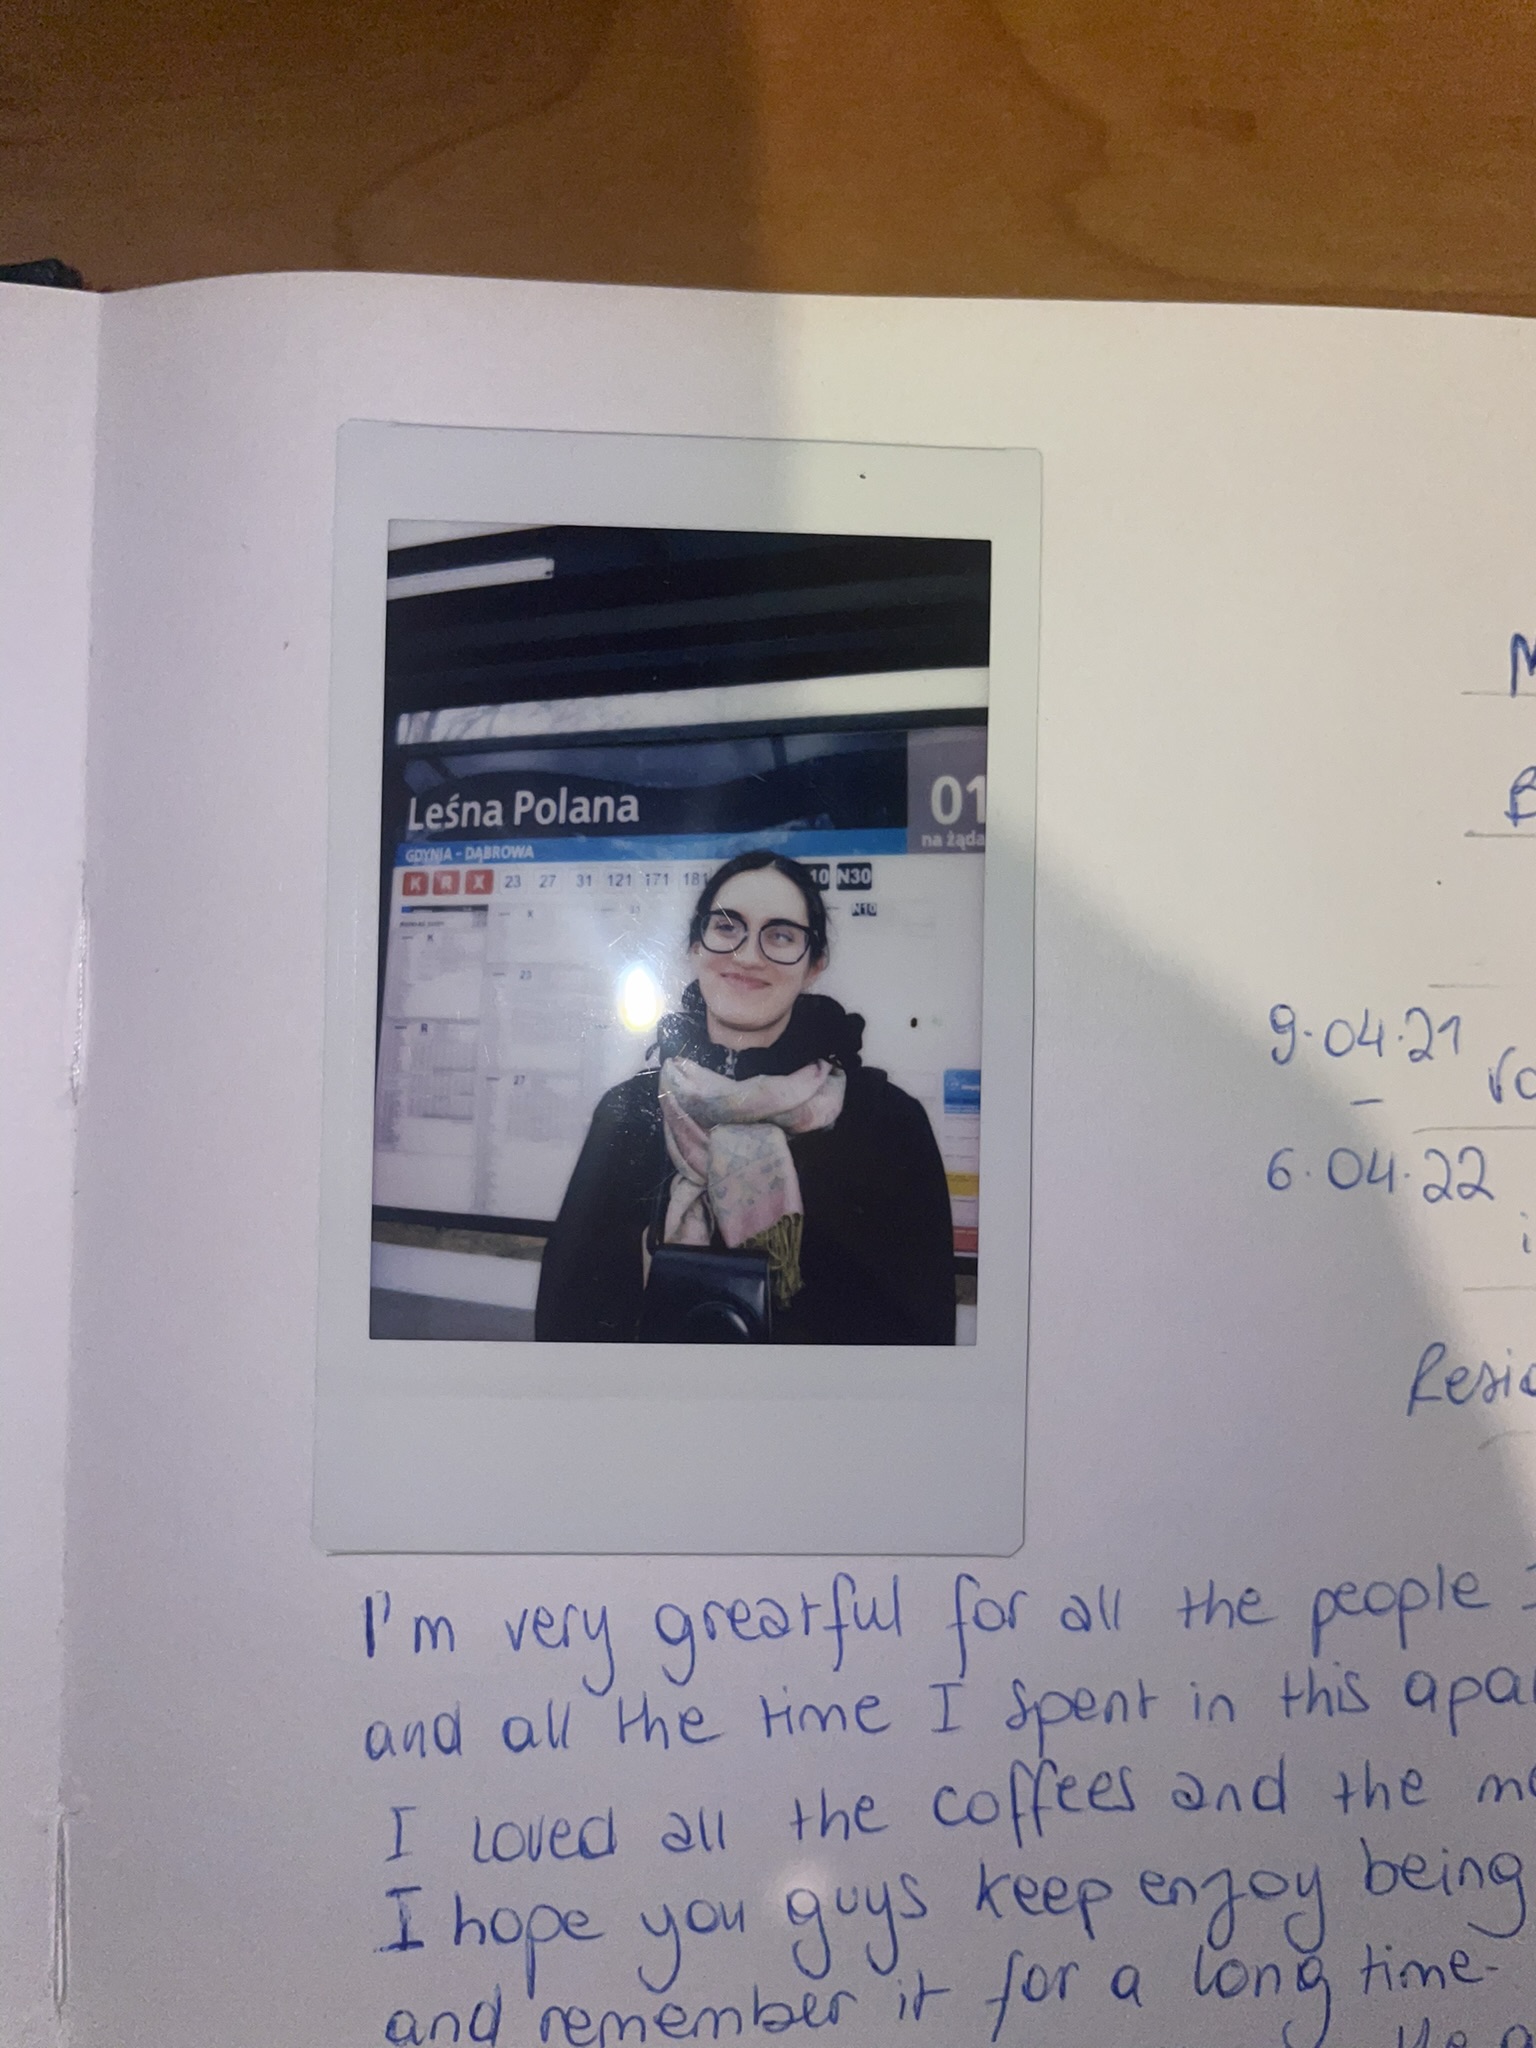 Leśna Polana
01
na żąda
GDYNIA - DĄBROWA
K R X 23 27 31 121 171 181 10 N30
X 31 N10
K
23
R
27
M
B
9.04.21
–
6.04.22
Resid
I'm very greatful for all the people I
and all the time I spent in this apar
I loved all the coffees and the me
I hope you guys keep enjoy being
and remember it for a long time.